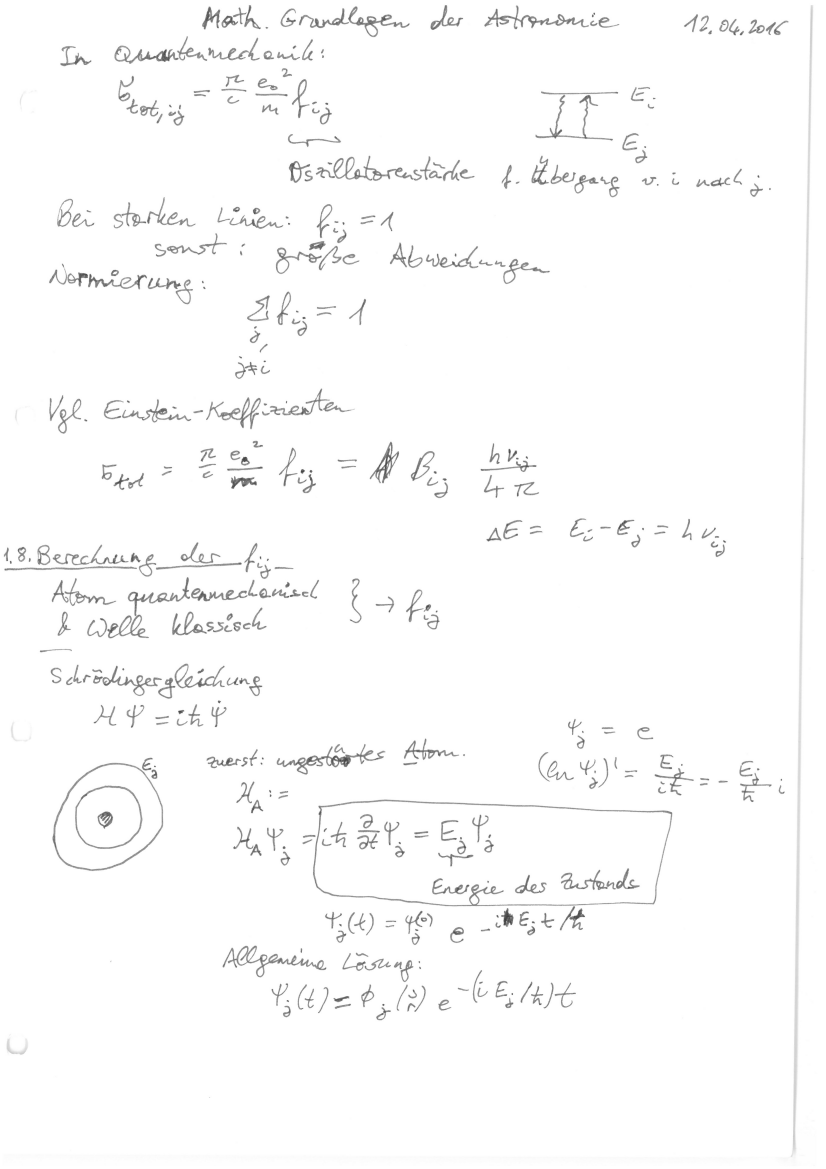 Math. Grundlagen der Astronomie 12.04.2016
In Quantenmechanik:
σ̃_tot,ij = π/c e₀²/m f_ij
E_i
E_j
Oszillatorenstärke f. Übergang v. i nach j.
Bei starken Linien: f_ij = 1
sonst: große Abweichungen
Normierung:
Σ f_ij = 1
j,
j≠i
Vgl. Einstein-Koeffizienten
σ_tot = π/c e₀²/m f_ij = B_ij hν_ij/4π
ΔE = E_i - E_j = hν_ij
1.8. Berechnung der f_ij
Atom quantenmechanisch
& Welle klassisch } → f_ij
Schrödingergleichung
H Ψ = iħ Ψ̇
Ψ_j = e
zuerst: ungestörtes Atom.
(ln Ψ_j)' = E_j/iħ = - E_j/ħ i
E_j
H_A :=
H_A Ψ_j = iħ ∂/∂t Ψ_j = E_j Ψ_j
Energie des Zustands
Ψ_j(t) = Ψ_j(0) e -iE_j t/ħ
Allgemeine Lösung:
Ψ_j(t) = ϕ_j(r⃗) e -(i E_j/ħ)t